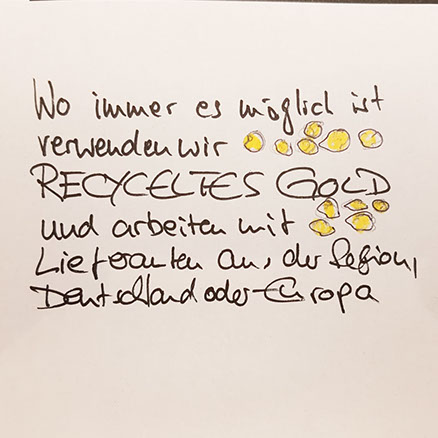 Wo immer es möglich ist
verwenden wir
RECYCELTES GOLD
und arbeiten mit
Lieferanten aus der Region,
Deutschland oder Europa